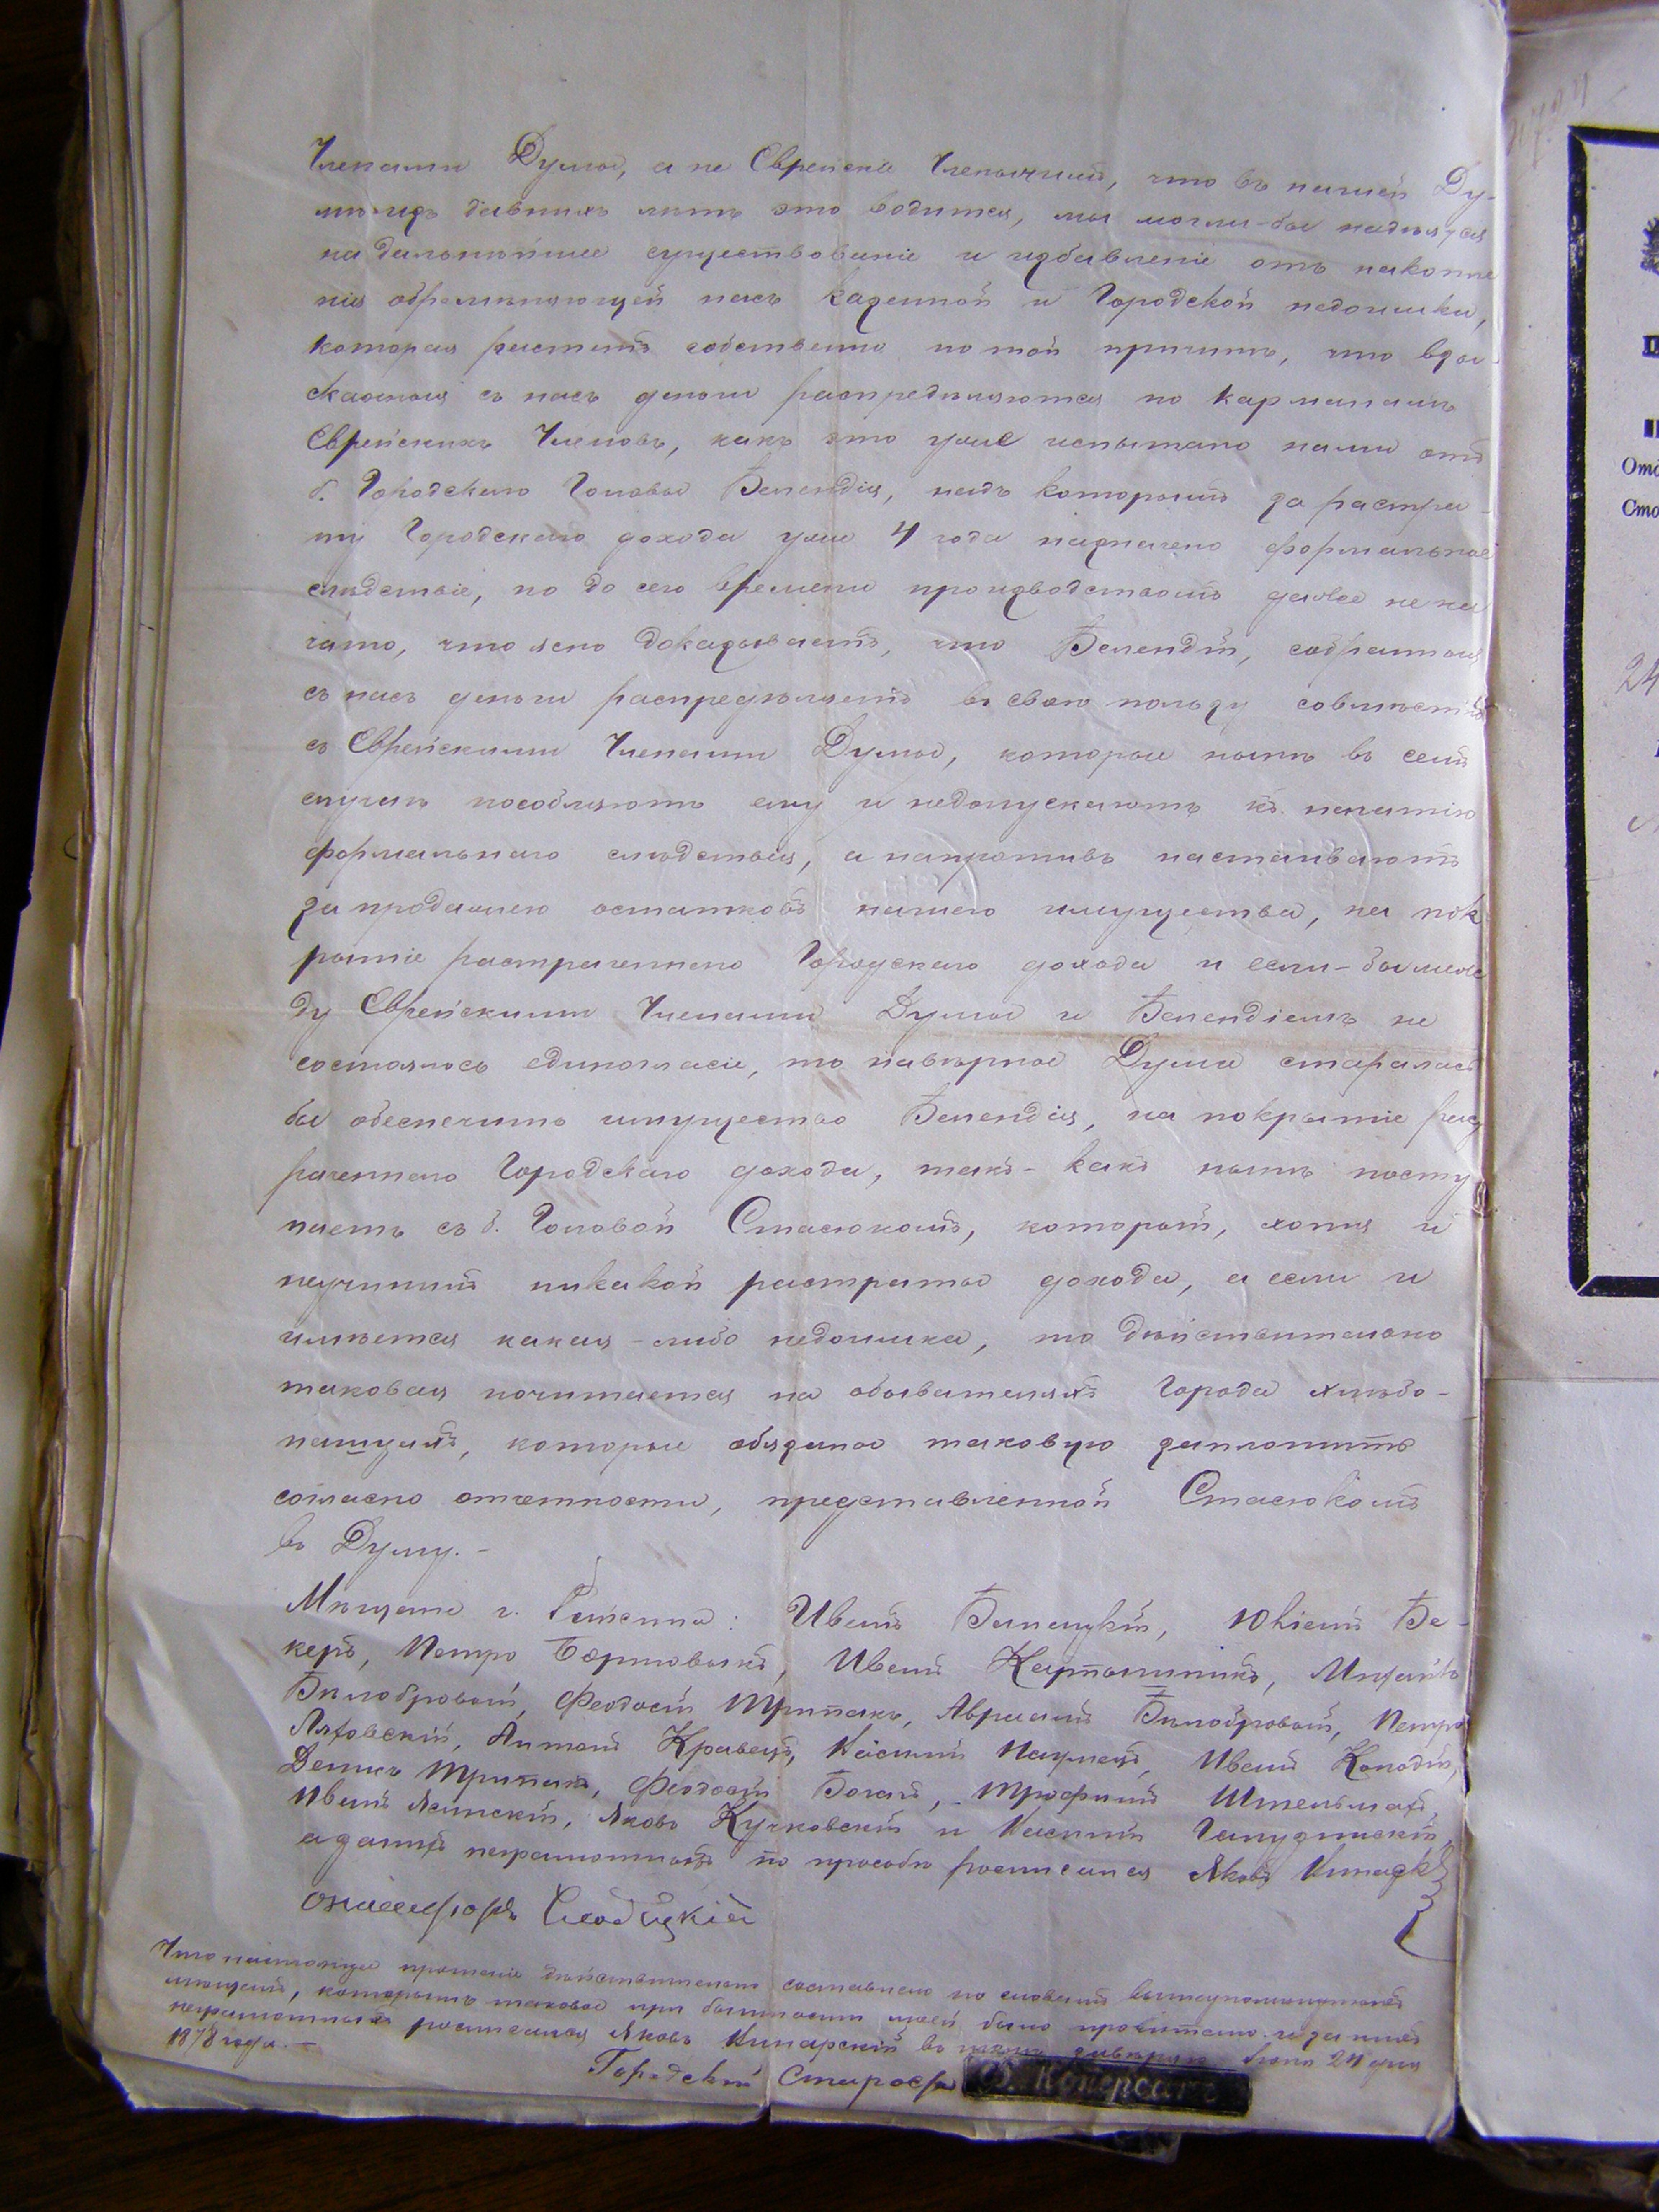 Членами Думы, а не Еврейскіе Членычили, что въ нашей Ду-
мѣ изъ давнихъ лѣтъ это водится, мы могли-бы надѣятся
на дальнѣйшее существованіе и избавленіе отъ накопле
нія обремѣняющей насъ казенной и Городской недоимки,
которая растетъ собственно по той причинѣ, что взы-
скаемыя съ насъ деньги распредѣляются по карманамъ
Еврейскихъ Членовъ, какъ это уже испытано нами отъ
б. Городскаго Головы Белендія, надъ которымъ за растра-
ту Городскаго дохода уже 4 года назначено формальное
слѣдствіе, но до сего времени производствомъ далѣе не на
чато, что ясно доказываетъ, что Белендій, собранныя
съ насъ деньги распредѣляетъ въ свою пользу совмѣстно
съ Еврейскими Членами Думы, которые нынѣ въ семъ
случаѣ пособляютъ ему и недопускаютъ къ начатію
формальнаго слѣдствія, а напротивъ настаиваютъ
за продажею остатковъ нашего имущества, на пок
рытіе растраченнаго Городскаго дохода и если-бы меж
ду Еврейскими Членами Думы и Белендіемъ не
состоялось единогласіе, то навѣрное Дума старалась
бы обеспечить имущество Белендія, на покрытіе раст
раченнаго Городскаго дохода, такъ-какъ нынѣ посту
паетъ съ б. Головой Стасюкомъ, который, хотя и
неучинилъ никакой растраты дохода, а если и
имѣется какая-либо недоимка, то дѣйствительно
таковая почитается на обывателяхъ города хлѣбо-
пащцахъ, которые обязаны таковую заплотить
согласно отчетности, представленной Стасюкомъ
въ Думу.-
Мѣщане г. : Иванъ Билецкій, Юліанъ Бе-
керъ, Петро Бортовыкъ, Иванъ , Михаилъ
Билобровый, Феодосій Трипакъ, Авраамъ Билобровый, Петро
Ляховскій, Антонъ Кравецъ, Иванъ Колодій,
Денисъ Трипакъ, Феодосій Богачъ, Трофимъ Штельмахъ,
Иванъ Ясинскій, Яковъ Кучковскій и Василій
а за нихъ неграмотныхъ по прозьбѣ росписался Яковъ

Что настоящее прошеніе дѣйствительно составлено по словамъ вышеупомянутыхъ
мѣщанъ, которымъ таковое при бытности моей было прочитано и за нихъ
неграмотныхъ росписался Яковъ въ томъ завѣряю Іюня 24 дня
1878 года.-
Городскій Староста